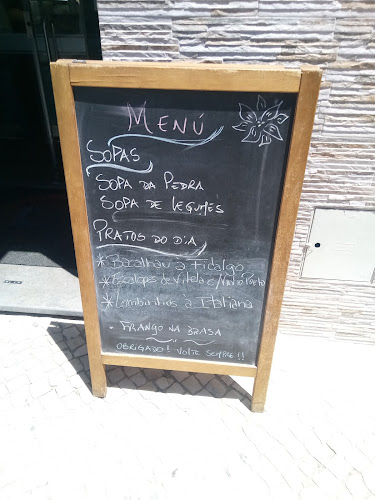 MENÚ
SOPAS
SOPA DA PEDRA
SOPA DE LEGUMES
PRATOS DO DIA
* Bacalhau à Fidalgo
* Escalopes de Vitela c/ Vinho Porto
* Lombinhos à Italiana
• FRANGO NA BRASA
OBRIGADO! VOLTE SEMPRE!!